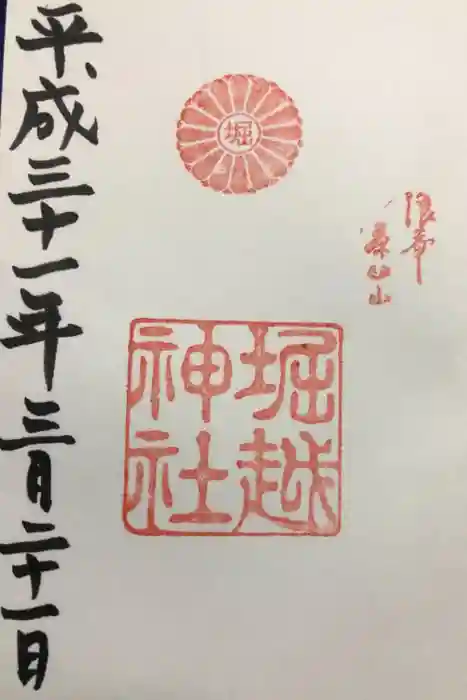 堀
堀越
神社
平成三十一年三月二十一日